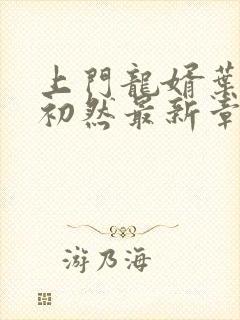 上門龍婿葉
初然最新章
游乃海